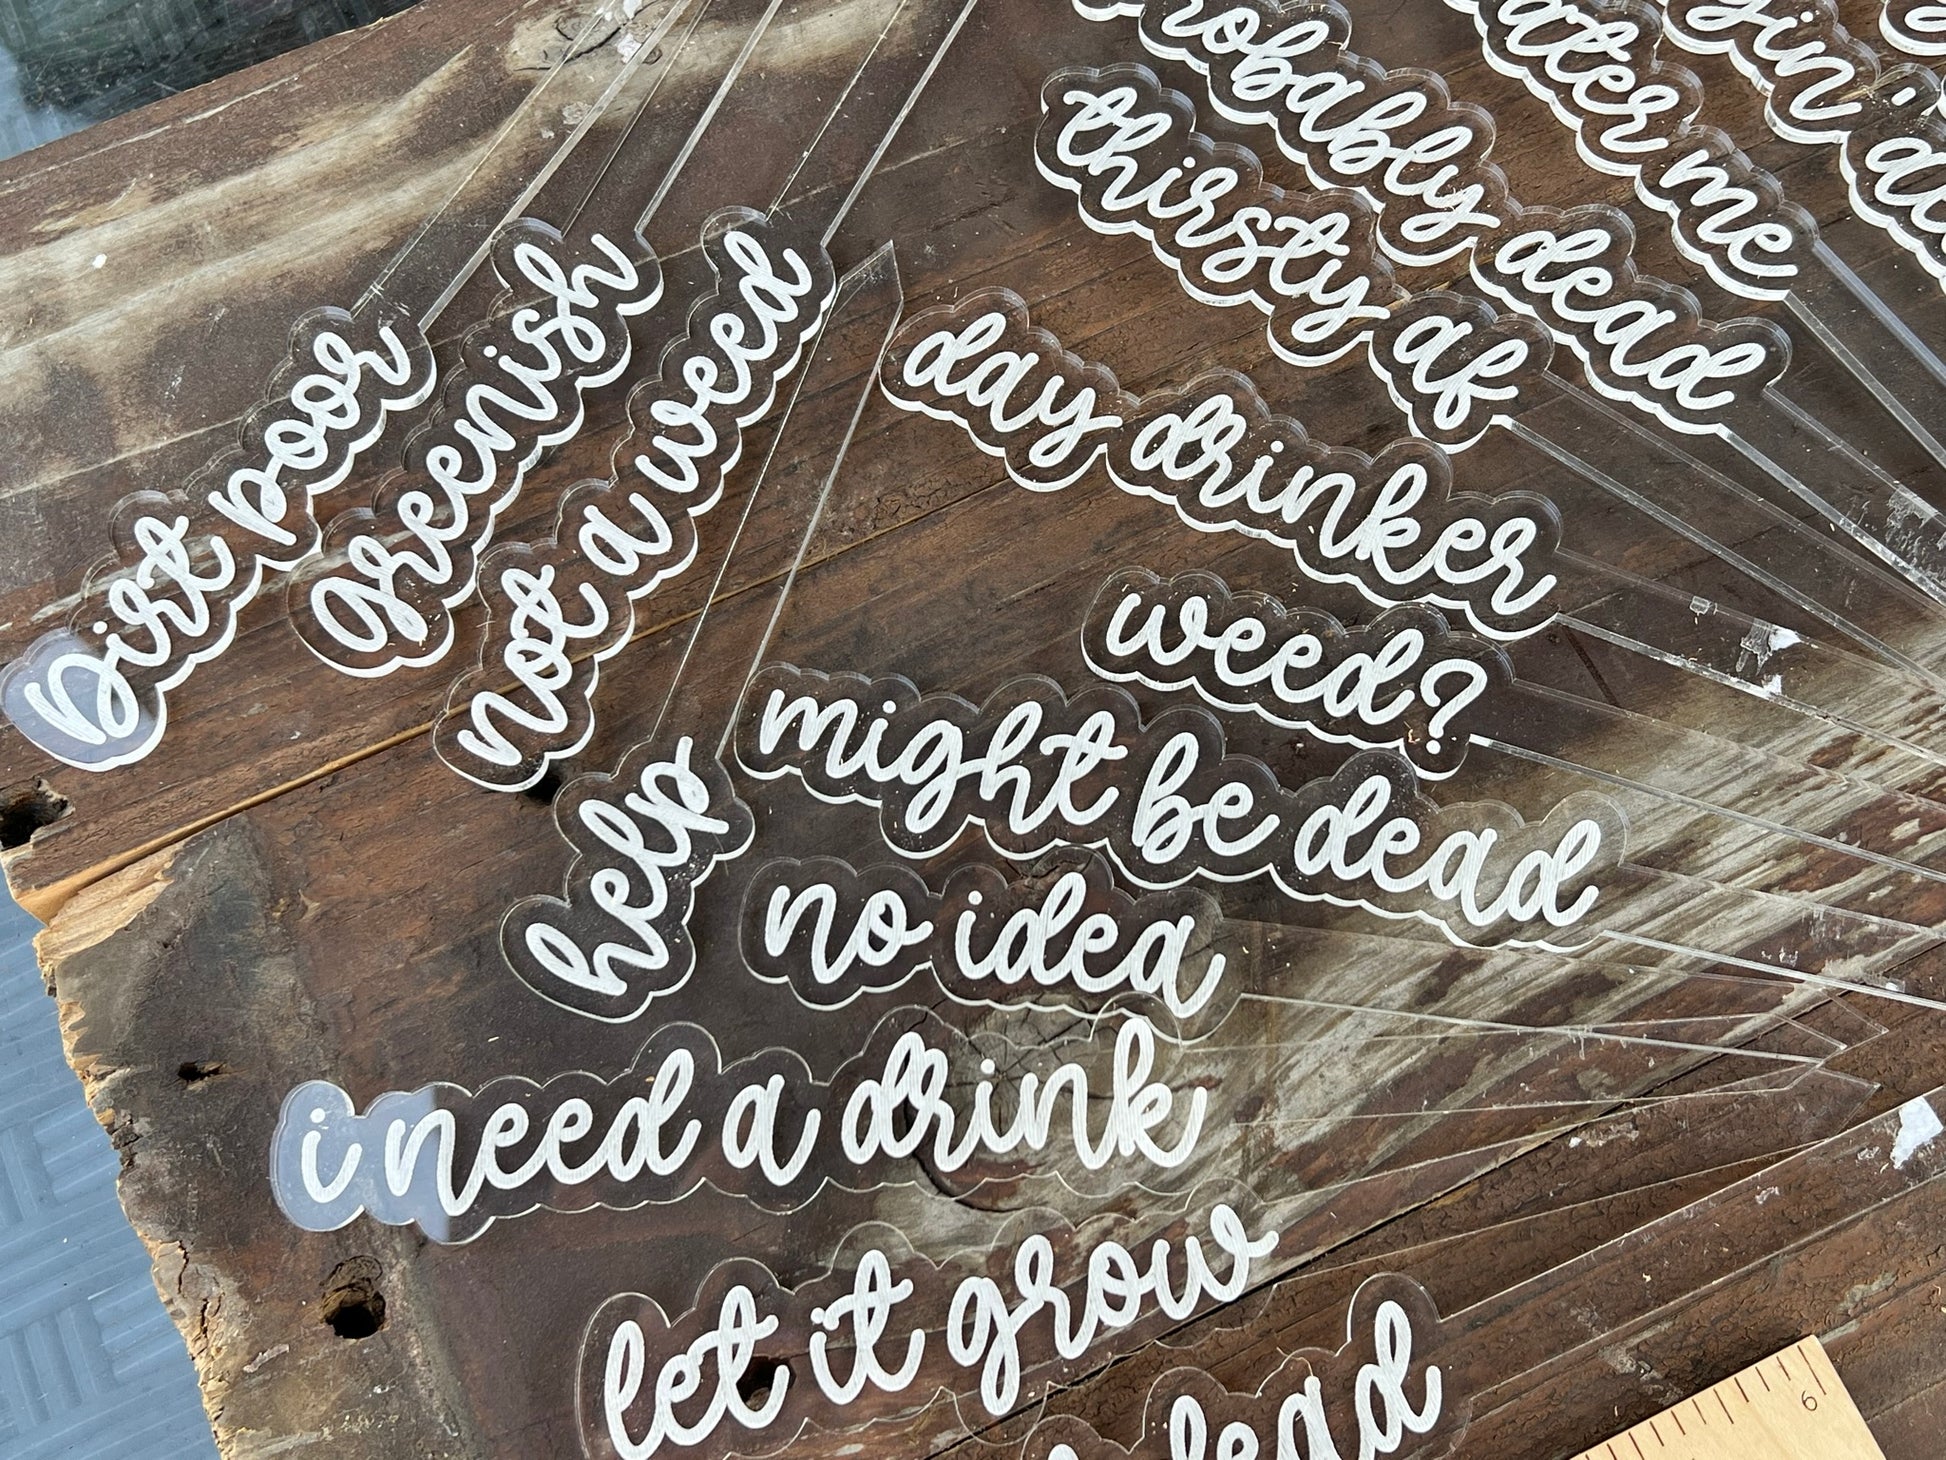 Dirt poor
greenish
not a weed
help
probably dead
water me
thirsty af
day drinker
weed?
might be dead
no idea
i need a drink
let it grow
dead
6